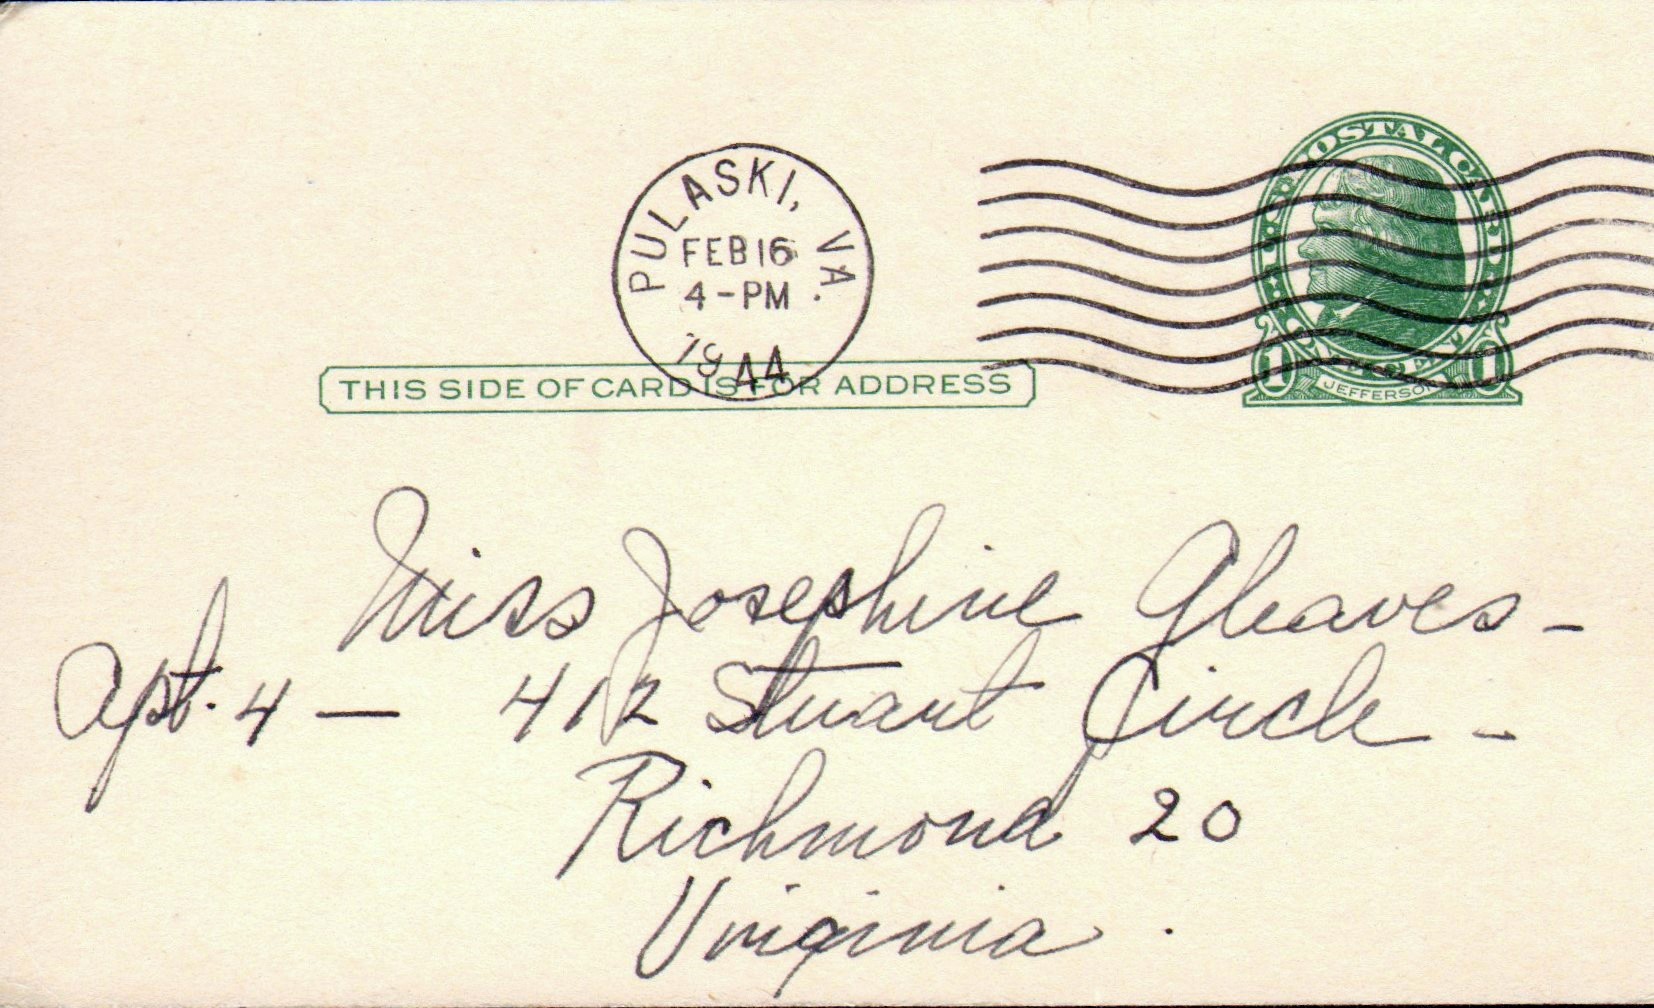 PULASKI, VA.
FEB 16
4-PM
1944
U.S. POSTAL CARD
1 JEFFERSON 1
THIS SIDE OF CARD IS FOR ADDRESS
Miss Josephine Gleaves -
Apt. 4 — 412 Stuart Circle -
Richmond 20
Virginia.